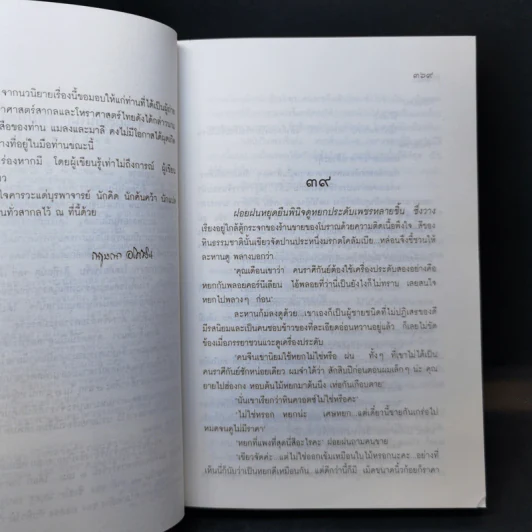 จากนวนิยายเรื่องนี้ขอมอบให้แก่ท่านที่ได้เป็นผู้
าศาสตร์สากลและโหราศาสตร์ไทยดังได้กล่าวนาม
สือของท่าน แมลงและมาลี คงไม่มีโอกาสได้
างที่อยู่ในมือท่านขณะนี้
ร่องหากมี โดยผู้เขียนรู้เท่าไม่ถึงการณ์ ผู้เขียน
ว
ใจคารวะแด่บุรพาจารย์ นักคิด นักค้นคว้า
นทั่วสากลไว้ ณ ที่นี้ด้วย
๓๖๙
๓๙
ฝอยฝนหยุดยืนพินิจดูหยกประดับเพชรหลายชิ้น ซึ่งวาง
เรียงอยู่ใกล้ตู้กระจกของร้านขายของโบราณด้วยความติดเนื้อพึงใจ สีของ
หินธรรมชาตินั้นเขียวจัดปานประหนึ่งมรกตโคลัมเบีย หล่อนจึงชี้ชวนให้
ละหานดู พลางบอกว่า
"คุณเตือนเขาว่า คนราศีกันย์ต้องใช้เครื่องประดับสองอย่างคือ
หยกกับพลอยคอร์นีเลียน ไอ้พลอยที่ว่านี้เป็นยังไงก็ไม่ทราบ เลยสนใจ
หยกไปพลางๆ ก่อน"
ละหานก้มลงดูด้วย เขาเองก็เป็นผู้ชายชนิดที่ไม่ปฏิเสธของดี
มีรสนิยมและเป็นคนชอบข้าวของที่ละเอียดอ่อนหวานอยู่แล้ว ก็เลยไม่ขัด
ข้องเมื่อภรรยาชวนแวะดูเครื่องประดับ
"คนจีนเขานิยมใช้หยกไม่ใช่หรือ ฝน ทั้งๆ ที่เขาไม่ได้เป็น
คนราศีกันย์ซักหน่อยเดียว ผมจำได้ว่า สักสิบปีก่อนตอนผมเด็กๆ น่ะ คุณ
ยายไปฮ่องกง หอบต้นไม้หยกมาต้นนึง เห่อกันเกือบตาย"
"นั่นเขาเรียกว่าหินควอตซ์ไม่ใช่หรือคะ"
"ไม่ใช่หรอก หยกน่ะ เศษหยก..แต่เดี๋ยวนี้ขายกันเกร่อไป
หมดจนดูไม่มีราคา"
"หยกที่แพงที่สุดนี่สีอะไรคะ" ฝอยฝนถามคนขาย
"เขียวจัดค่ะ..แต่ไม่ใช่ออกเข้มเหมือนใบไม้หรอกนะคะ..อย่างที่
เห็นนี่ก็นับว่าเป็นหยกดีเหมือนกัน แต่ดีกว่านี้ก็มี เม็ดขนาดนิ้วก้อยก็ราคา